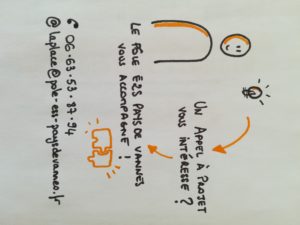 UN APPEL À PROJET
VOUS INTÉRESSE ?
LE PÔLE E2S PAYS DE VANNES
VOUS ACCOMPAGNE !
06.63.53.87.94
@ laplace@pole-ess-paysdevannes.fr